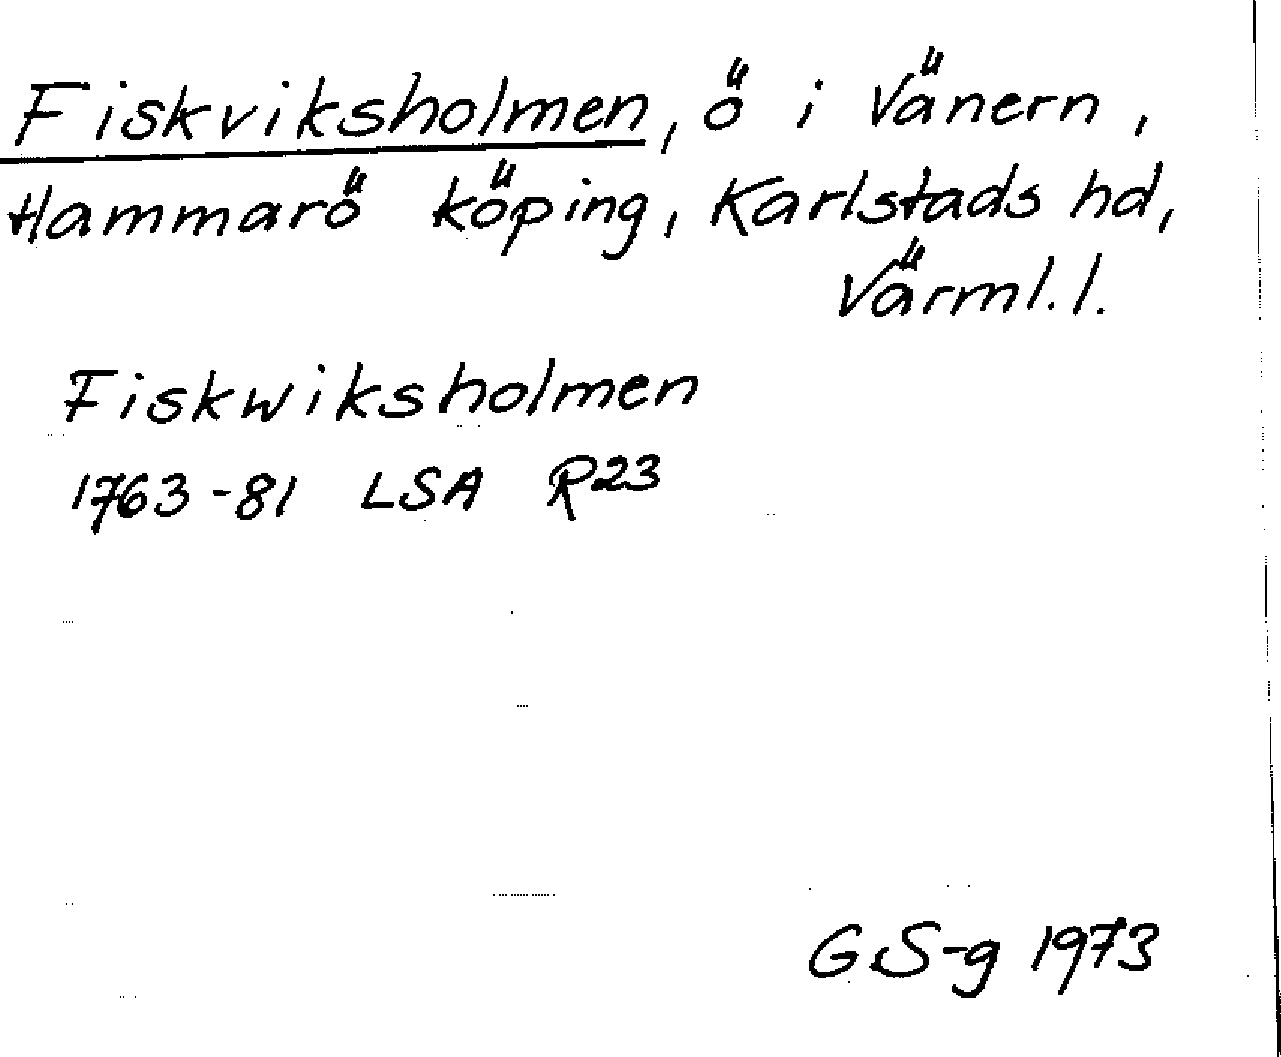 Fiskviksholmen, ö i Vänern,
Hammarö köping, Karlstads hd,
Värml.l.
Fiskwiksholmen
1763-81 LSA R23
GS-g 1973